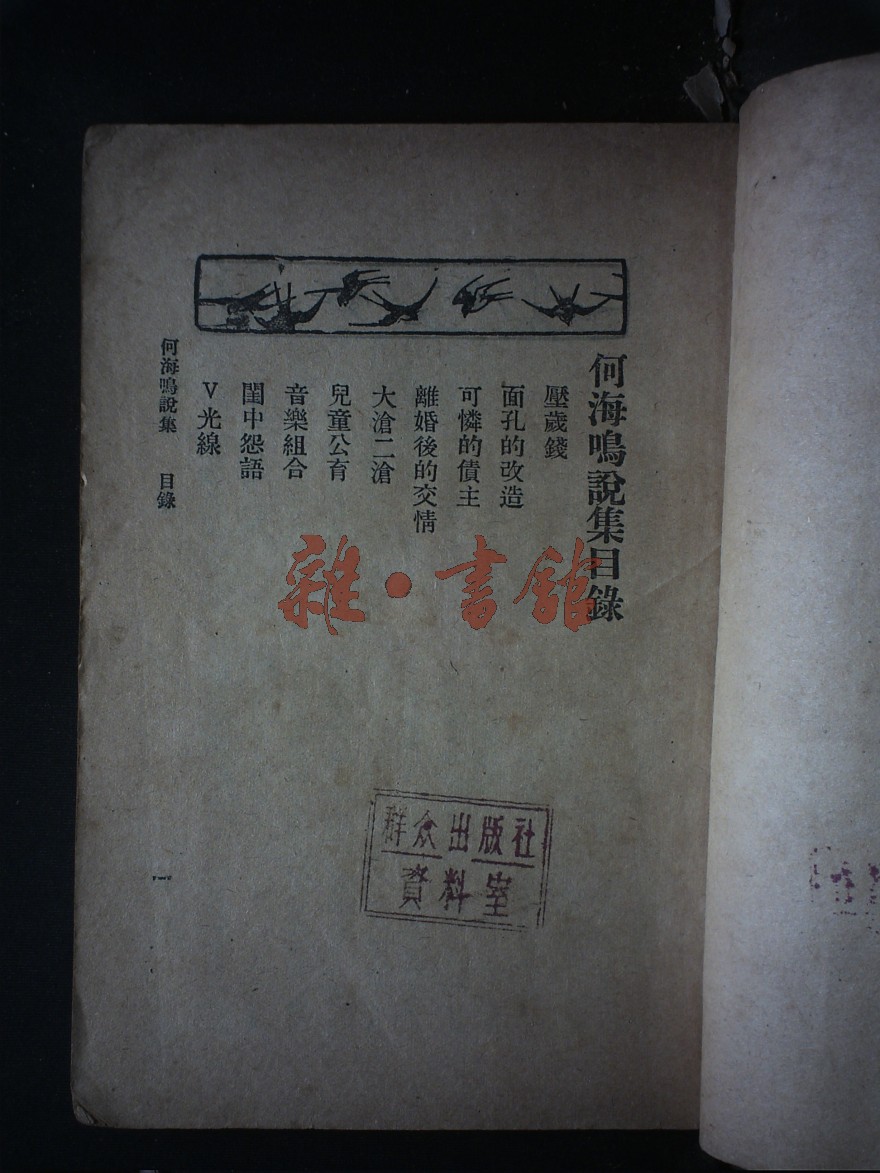 何海鳴說集目錄
壓歲錢
面孔的改造
可憐的債主
離婚後的交情
大滄二滄
兒童公育
音樂組合
閨中怨語
V光線
何海鳴說集 目錄
一
雜·書館
群众出版社
資料室